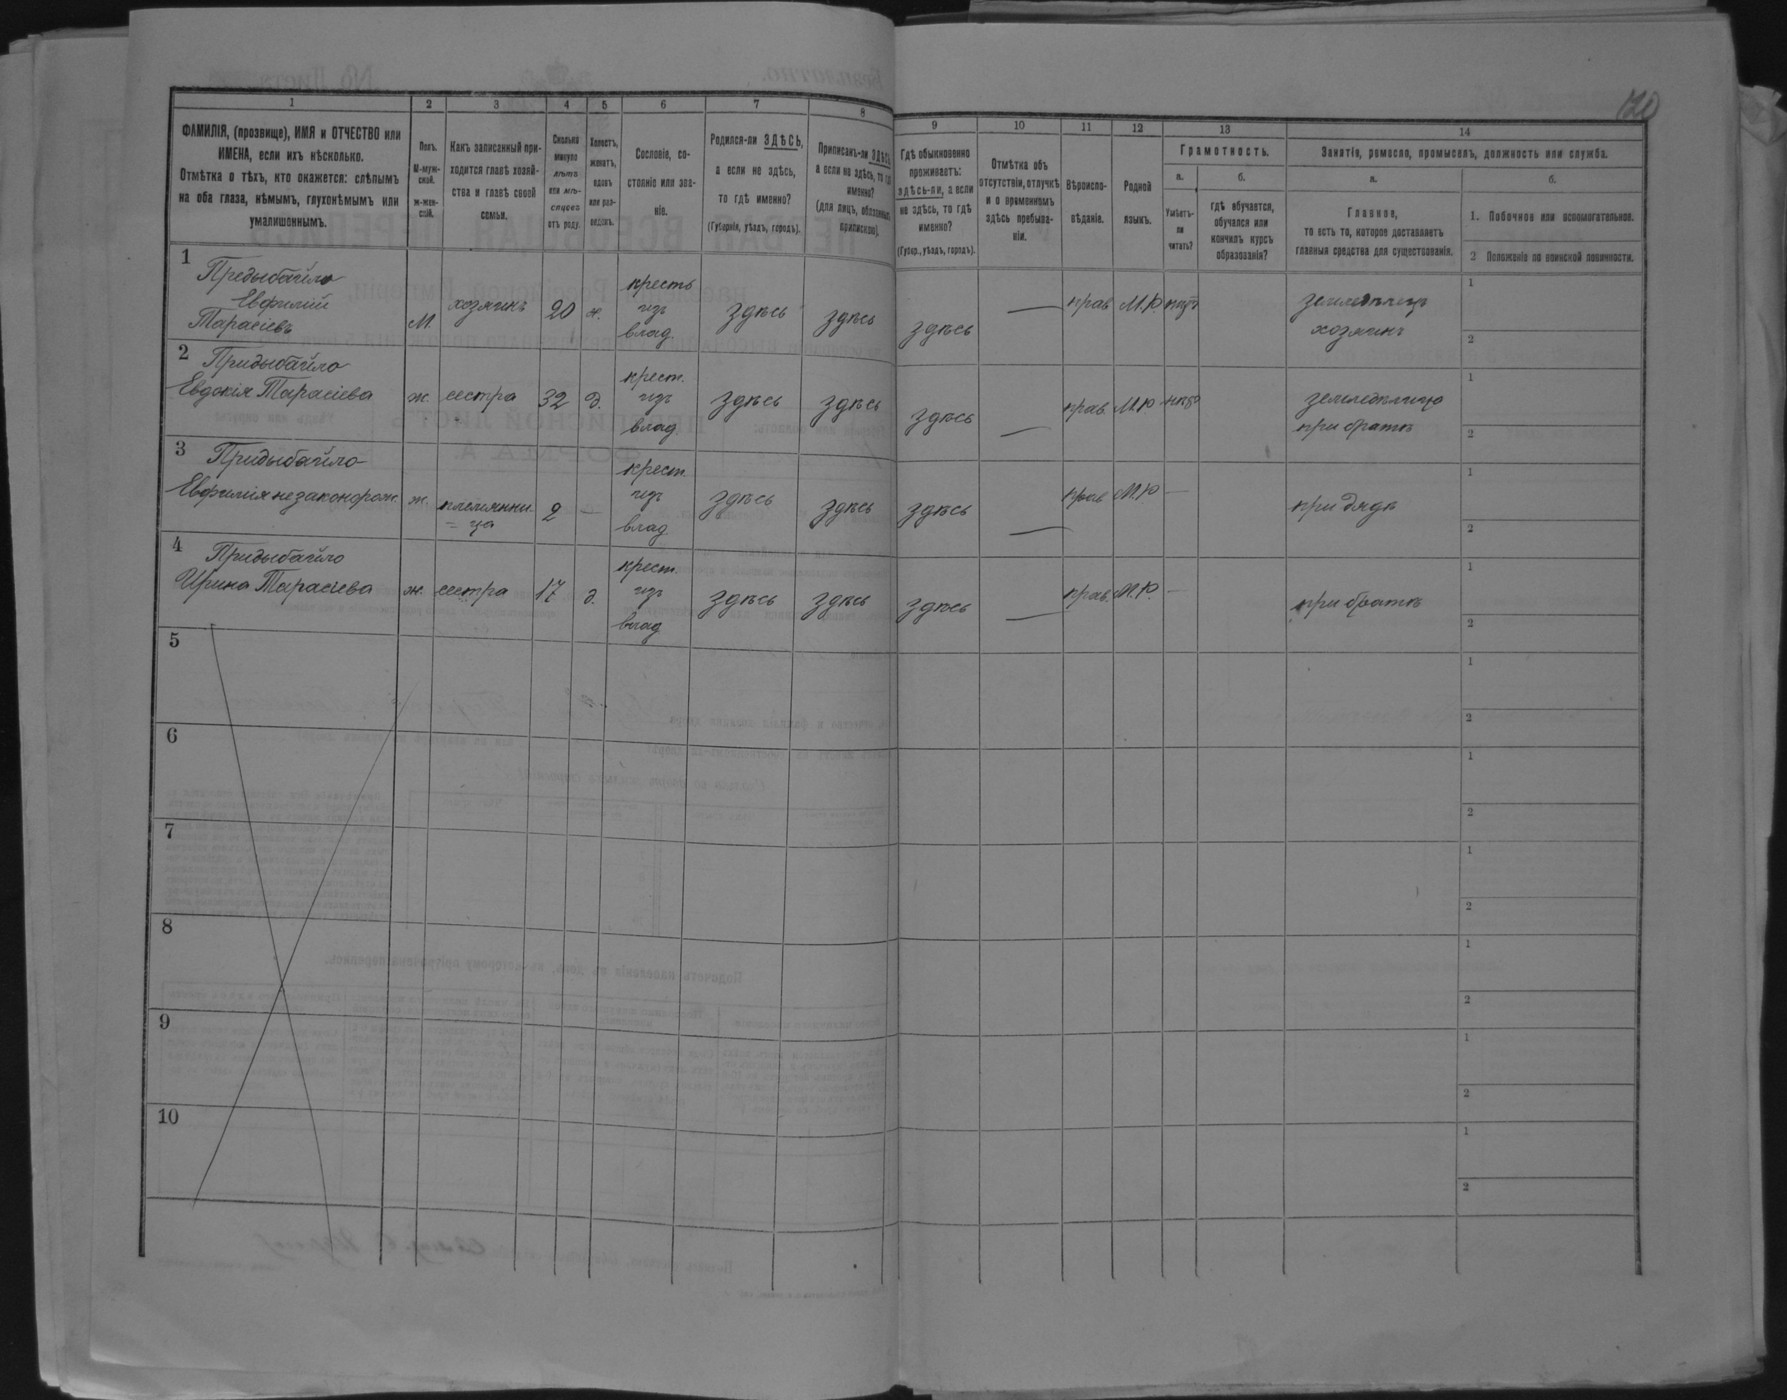 120
1 2 3 4 5 6 7 8 9 10 11 12 13 14
ФАМИЛІЯ, (прозвище), ИМЯ и ОТЧЕСТВО или
ИМЕНА, если ихъ нѣсколько.
Отмѣтка о тѣхъ, кто окажется: слѣпымъ
на оба глаза, нѣмымъ, глухонѣмымъ или
умалишоннымъ.
Полъ.
М-муж-
ской.
ж-жен-
скій.
Какъ записанный при-
ходится главѣ хозяй-
ства и главѣ своей
семьи.
Сколько
минуло
лѣтъ
или мѣ-
сяцевъ
отъ роду.
Холостъ,
женатъ,
вдовъ
или раз-
веденъ.
Сословіе, со-
стояніе или зва-
ніе.
Родился-ли ЗДѢСЬ,
а если не здѣсь,
то гдѣ именно?
(Губернія, уѣздъ, городъ).
Приписанъ-ли ЗДѢСЬ,
а если не здѣсь, то гдѣ
именно?
(для лицъ, обязанныхъ
припискою).
Гдѣ обыкновенно
проживаетъ:
здѣсь-ли, а если
не здѣсь, то гдѣ
именно?
(Губер., уѣздъ, городъ).
Отмѣтка объ
отсутствіи, отлучкѣ
и о временномъ
здѣсь пребыва-
ніи.
Вѣроиспо-
вѣданіе.
Родной
языкъ.
Грамотность.
а.
Умѣетъ-
ли
читать?
б.
гдѣ обучается,
обучался или
кончилъ курсъ
образованія?
Занятія, ремесло, промыселъ, должность или служба.
а.
Главное,
то есть то, которое доставляетъ
главныя средства для существованія.
б.
1. Побочное или вспомогательное.
2 Положеніе по воинской повинности.
1
Придыбайло
Евфимій
Тарасіевъ
М.
хозяинъ
20
ж.
кресть
изъ
влад
здѣсь
здѣсь
здѣсь
—
прав
М.Р
нѣтъ
земледѣлецъ
хозяинъ
1
2
2
Придыбайло
Евдокія Тарасіева
ж.
сестра
32
д.
крест.
изъ
влад
здѣсь
здѣсь
здѣсь
—
прав.
М.Р
нѣтъ
при братѣ
1
2
3
Придыбайло
Евфимія незаконорож.
ж.
племянни
=ца
2
—
крест.
изъ
влад
здѣсь
здѣсь
здѣсь
—
прав
М.Р
—
при дядѣ
1
2
4
Придыбайло
Ирина Тарасіева
ж.
сестра
17
д.
крест.
изъ
влад
здѣсь
здѣсь
здѣсь
—
прав.
М.Р
—
при братѣ
1
2
5
1
2
6
1
2
7
1
2
8
1
2
9
1
2
10
1
2